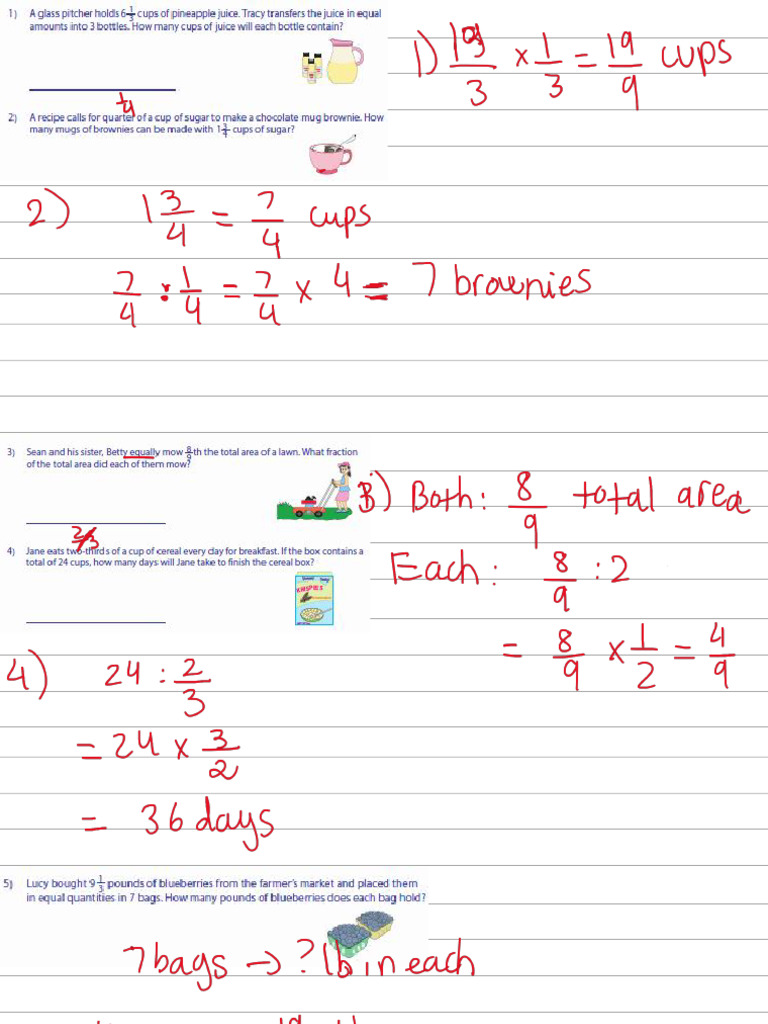 1) A glass pitcher holds 6 1/3 cups of pineapple juice. Tracy transfers the juice in equal
amounts into 3 bottles. How many cups of juice will each bottle contain?
1) 19/3 × 1/3 = 19/9 cups
1/4
2) A recipe calls for quarter of a cup of sugar to make a chocolate mug brownie. How
many mugs of brownies can be made with 1 3/4 cups of sugar?
2) 1 3/4 = 7/4 cups
7/4 : 1/4 = 7/4 × 4 = 7 brownies
3) Sean and his sister, Betty equally mow 8/9 th the total area of a lawn. What fraction
of the total area did each of them mow?
3) Both: 8/9 total area
Each: 8/9 : 2
= 8/9 × 1/2 = 4/9
2/3
4) Jane eats two-thirds of a cup of cereal every day for breakfast. If the box contains a
total of 24 cups, how many days will Jane take to finish the cereal box?
KRISPIES
4) 24 : 2/3
= 24 × 3/2
= 36 days
5) Lucy bought 9 1/3 pounds of blueberries from the farmer's market and placed them
in equal quantities in 7 bags. How many pounds of blueberries does each bag hold?
7 bags → ? lb in each